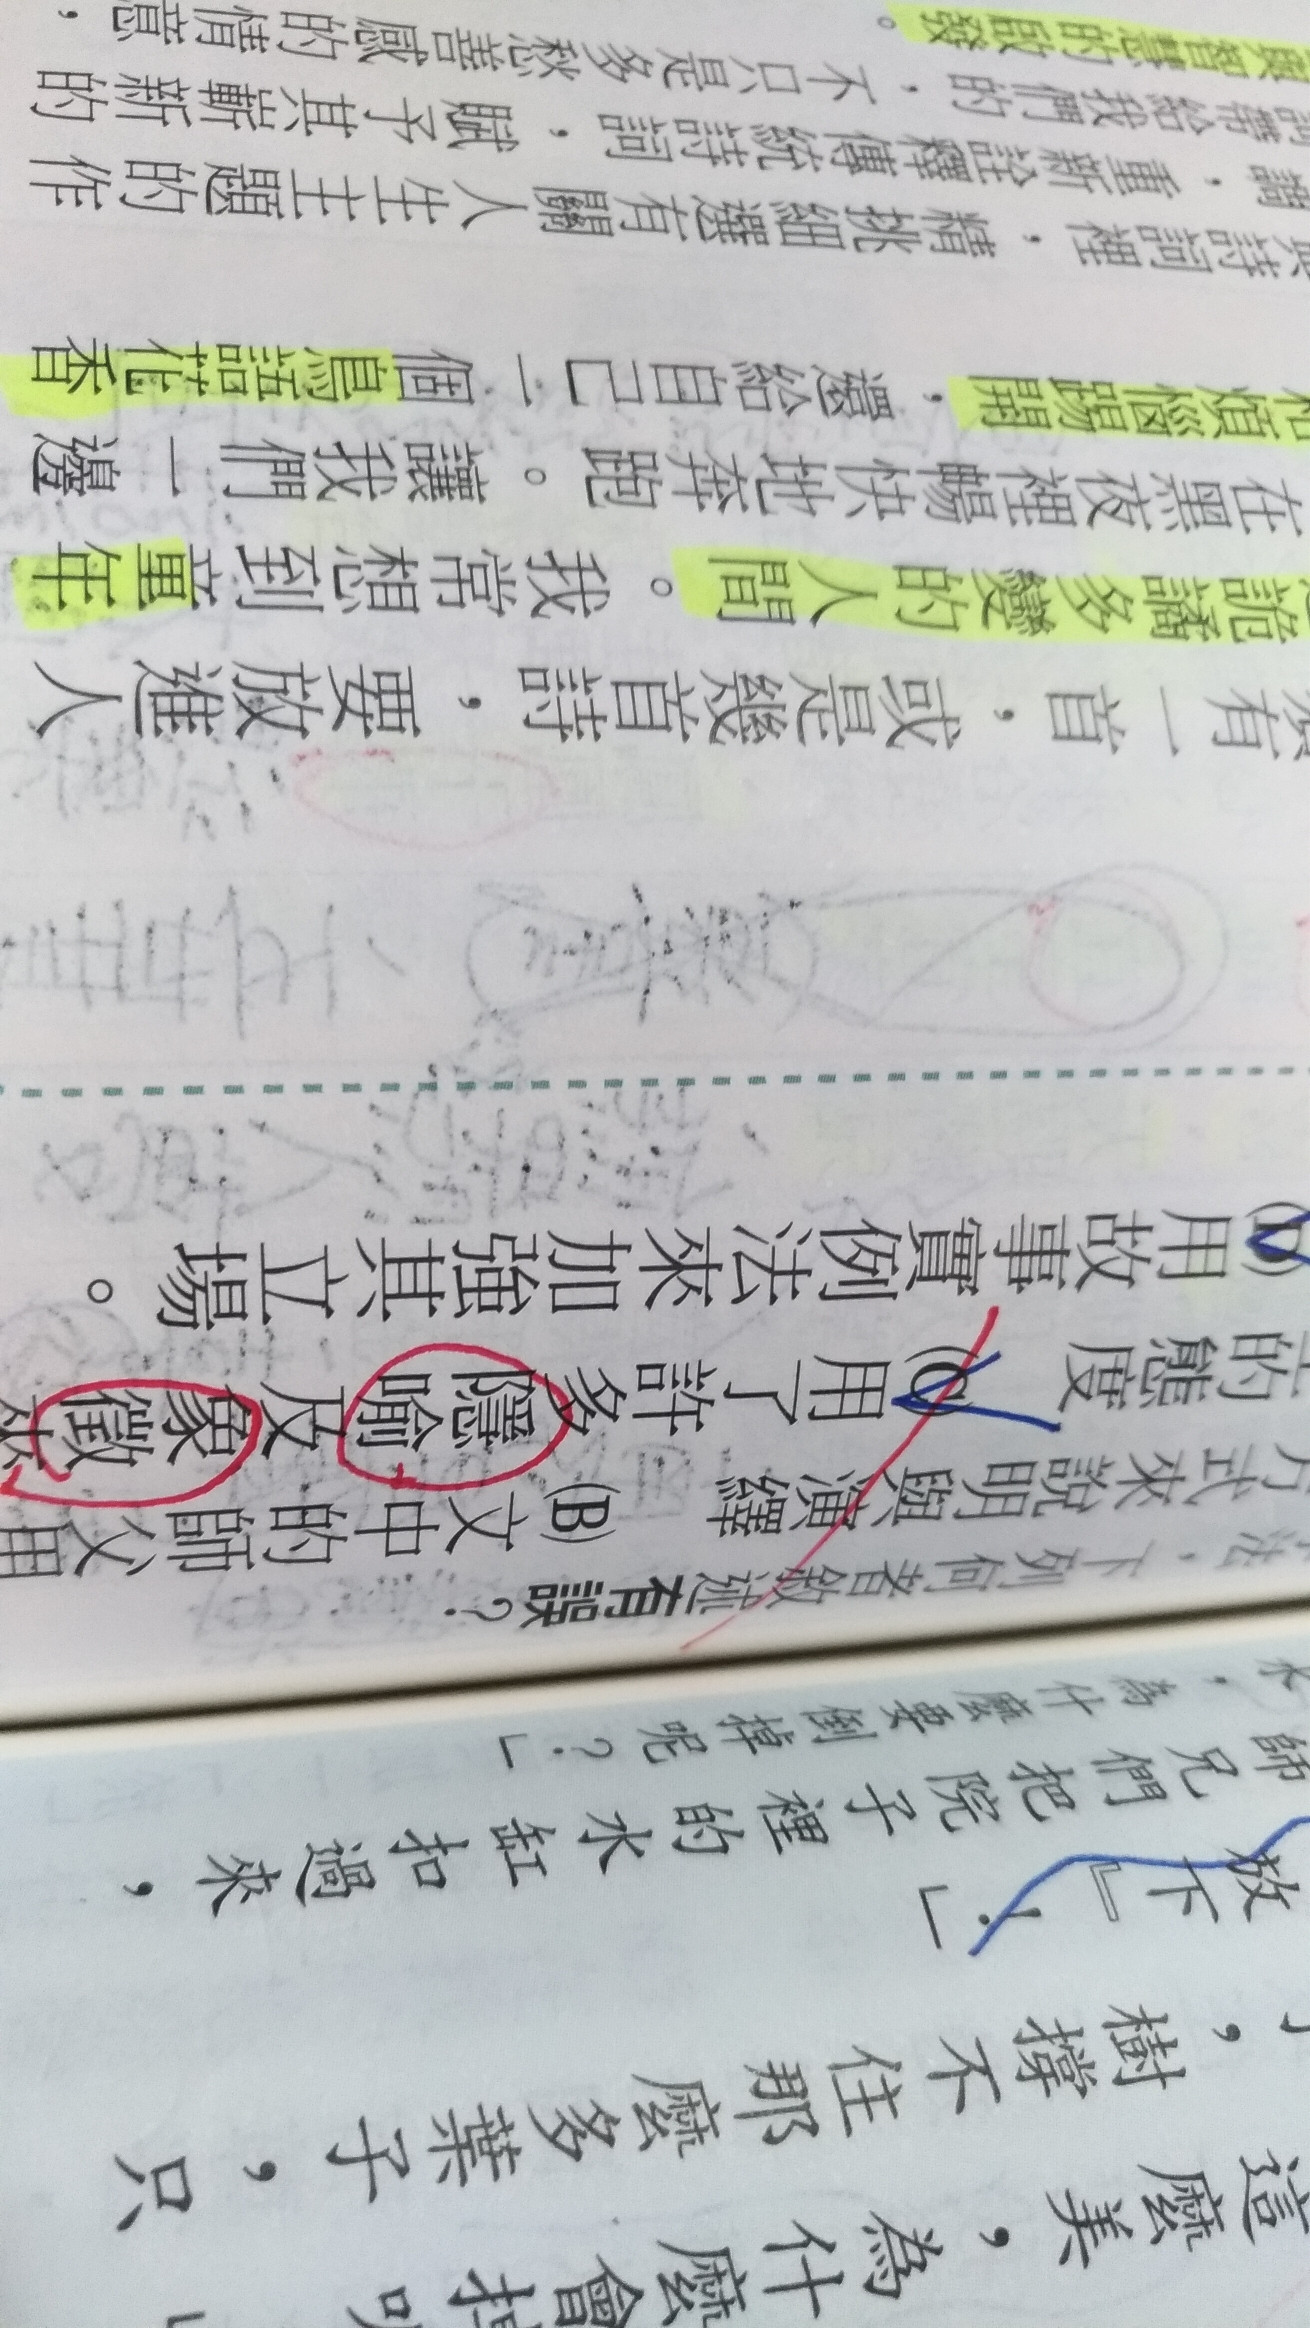 這麼美，為什麼會掉
，樹撐不住那麼多葉子，只
放下』！」
師兄們把院子裡的水缸扣過來，
水，為什麼要倒掉呢？」
法，下列何者敘述有誤？
方式來說明與演繹 (B)文中的師父用
的態度 (C)用了許多隱喻及象徵來
(D)用故事實例法來加強其立場。
有一首，或是幾首詩，要放進人
詭譎多變的人間。我常想到童年
在黑夜裡暢快地奔跑。讓我們一邊
煩惱踢開，還給自己一個鳥語花香
詩詞裡，精挑細選有關人生主題的作
，重新詮釋傳統詩詞，賦予其嶄新的
詞帶給我們的，不只是多愁善感的情意，
與智慧的啟發。